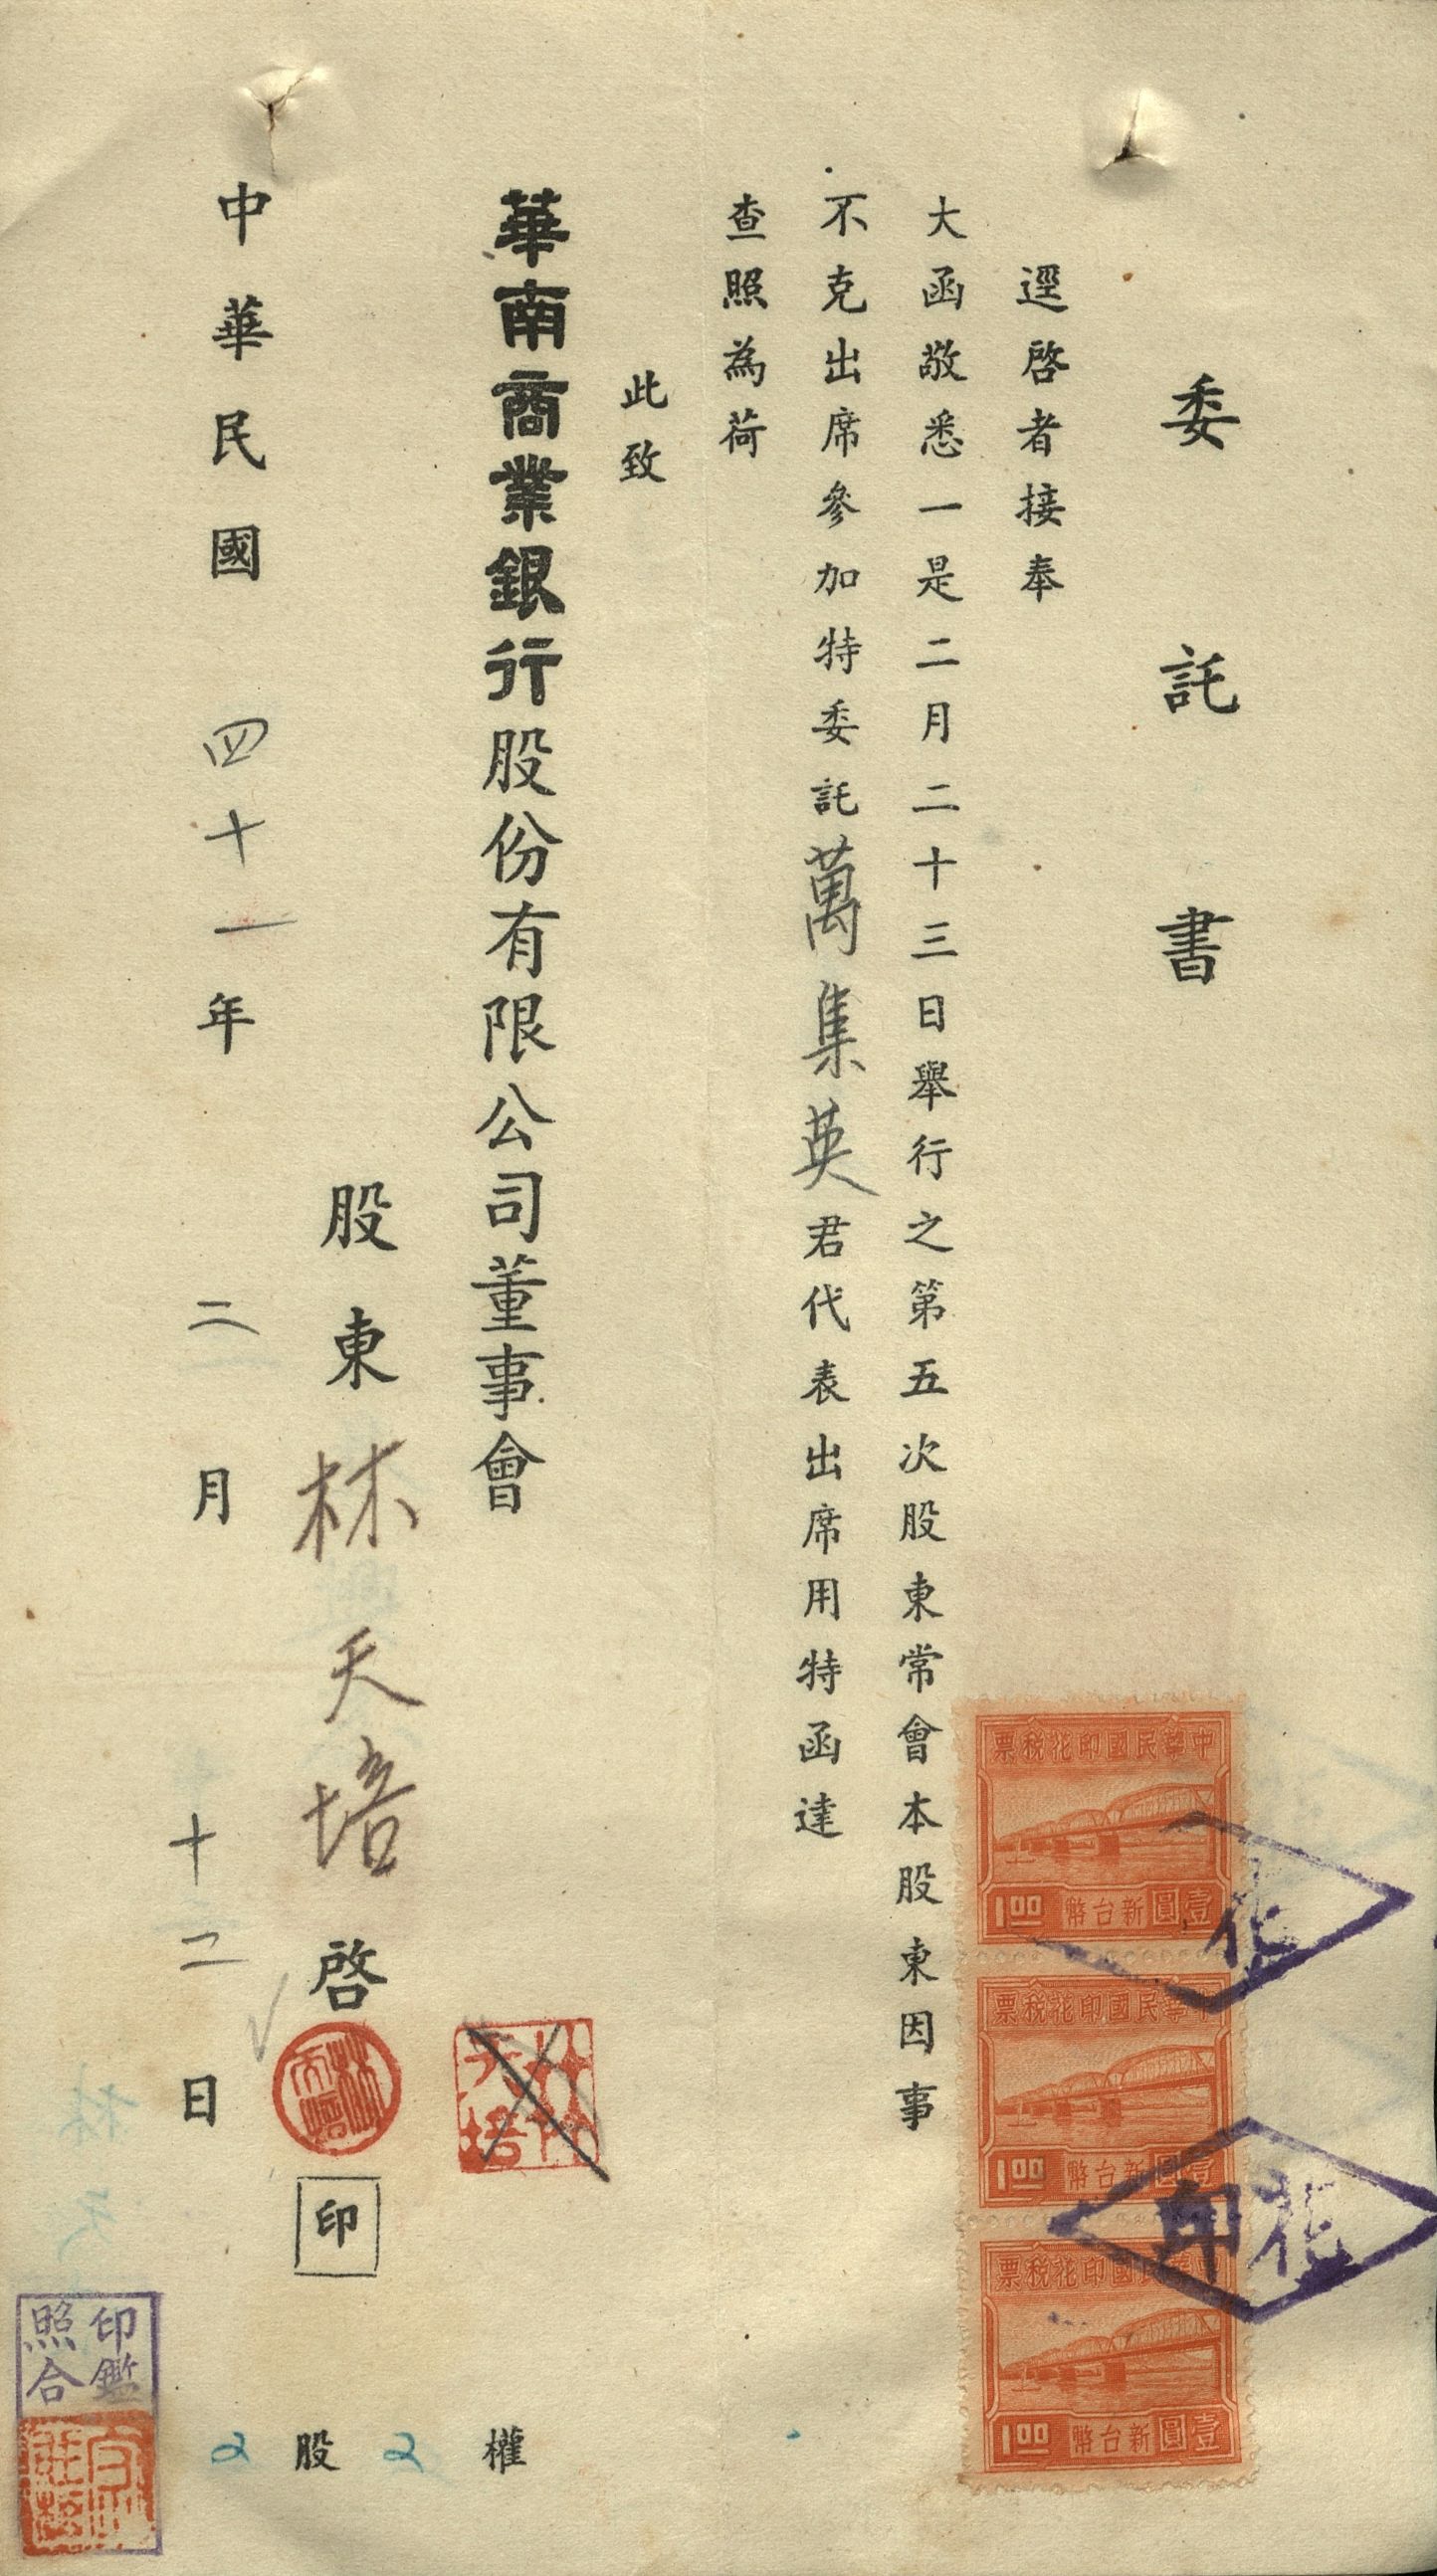 委託書
逕啓者接奉
大函敬悉一是二月二十三日舉行之第五次股東常會本股東因事
不克出席參加特委託萬集英君代表出席用特函達
查照為荷
此致
華南商業銀行股份有限公司董事會
股東林天培啓
印
中華民國四十一年二月十二日
2股2權
林天培
林天培
印鑑照合
中華民國印花稅票
1.00 新台幣壹圓
中華民國印花稅票
1.00 新台幣壹圓
中華民國印花稅票
1.00 新台幣壹圓
花
印花